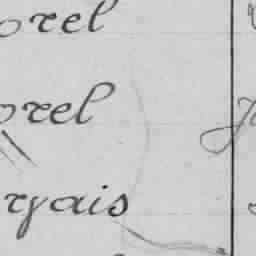 orel
orel
rvais